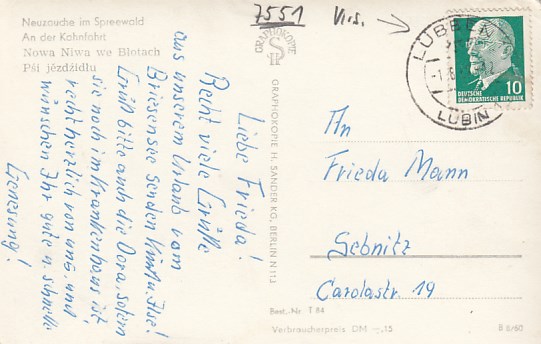 Neuzauche im Spreewald
An der Kahnfahrt
Nowa Niwa we Błotach
Pśi jězdźidłu
7551
Liebe Frieda!
Recht viele Grüße
aus unserem Urlaub vom
Briesensee senden Ilse!
Grüß bitte auch die Dora, sofern
sie noch im Krankenhaus ist
recht herzlich von uns, und
wünschen Ihr gute u. schnelle
Genesung!
GRAPHOKOPIE
GRAPHOKOPIE H. SANDER KG, BERLIN N 113
LÜBBEN
LUBIN
10
DEUTSCHE
DEMOKRATISCHE REPUBLIK
An
Frieda Mann
Sebnitz
Carolastr. 19
Best.-Nr. T 84
Verbraucherpreis DM –,15
B 8/60